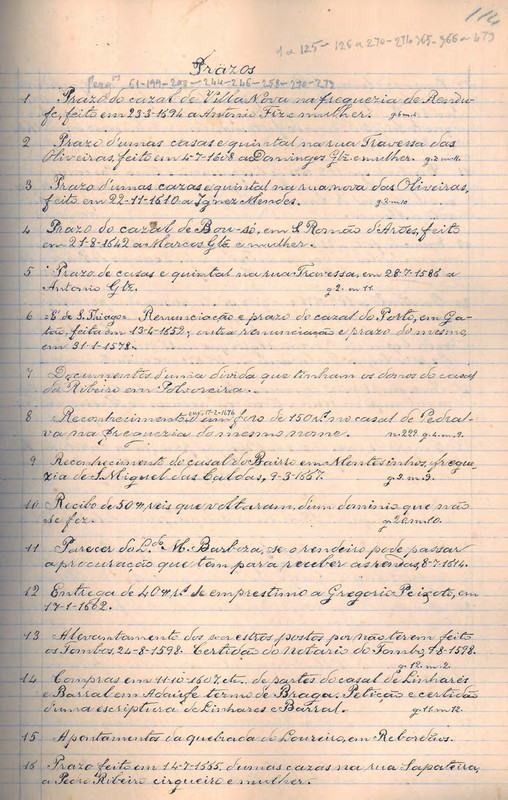 114
1 a 125 - 126 a 270 - 274 365 - 366 a 473
Prazos
Perg.os 61-199-203-244-246-258-270-273
1 Prazo do cazal de Villa Nova na freguezia de Rendu-
fe, feito em 23-3-1694 a António Fiz e mulher.
2 Prazo d'umas casas e quintal na rua Travessa das
Oliveiras, feito em 4-7-1608 a Domingos Glz e mulher. g. 2 m. 11.
3 Prazo d'umas cazas e quintal na rua nova das Oliveiras,
feito em 22-11-1610 a Ignez Mendes. g. 3 m. 10
4 Prazo do cazal de Bou-só, em S. Romão d'Arões, feito
em 21-8-1642 a Marcos Glz e mulher.
5 Prazo de casas e quintal na rua Travessa, em 28-7-1586 a
Antonio Glz. g. 2. m. 11.
6 =É de S. Thiago= Renunciação e prazo do cazal do Porto, em Ga-
tão, feita em 13-4-1652; outra renunciação e prazo do mesmo,
em 31-1-1578.
7 Documentos d'uma divida que tinham os donos do casal
do Ribeiro em Polvoreira.
8 Reconhecimento, em 17-2-1676 d'um foro de 150 r.s no casal de Pedral-
va na freguezia do mesmo nome. n. 229. g. 4. m. 9.
9 Reconhecimento do casal do Bairro em Montesinhos, fregue-
zia de S. Miguel das Caldas, 9-3-1667. g. 3. m. 9.
10 Recibo de 50 reis que voltaram d'um dominio que não
se fez. g. 26. m. 10.
11 Parecer do L.do M. Barboza, se o rendeiro pode passar
a procuração que tem para receber as rendas, 8-7-1614.
12 Entrega de 40 r.s de emprestimo a Gregorio Peixoto, em
17-1-1662.
13 Alevantamento dos sacrestros postos por não terem feito
os Tombos, 24-8-1598. Certidão do Notario do Tombo, 7-8-1598.
g. 12. m. 2.
14 Compras em 11-10-1607, etc. de partes do casal de Linhares
e Barral em Adaúfe termo de Braga. Petição e certidão
d'uma escriptura de Linhares e Barral. g. 11. m. 12.
15 Apontamentos da quebrada do Loureiro, em Rebordões.
16 Prazo feito em 14-7-1555, d'umas cazas na rua Sapateira,
a Pedro Ribeiro cirgueiro e mulher.